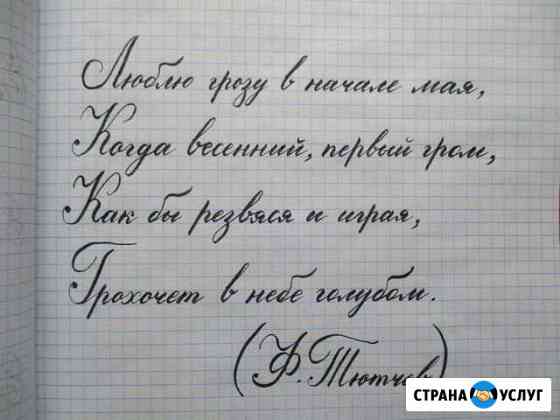 Люблю грозу в начале мая,
Когда весенний, первый гром,
Как бы резвяся и играя,
Грохочет в небе голубом.
(Ф. Тютчев)
СТРАНА УСЛУГ